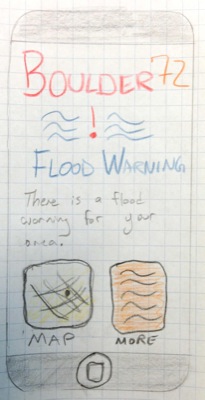 BOULDER 72
!
FLOOD WARNING
There is a flood
warning for your
area.
MAP MORE